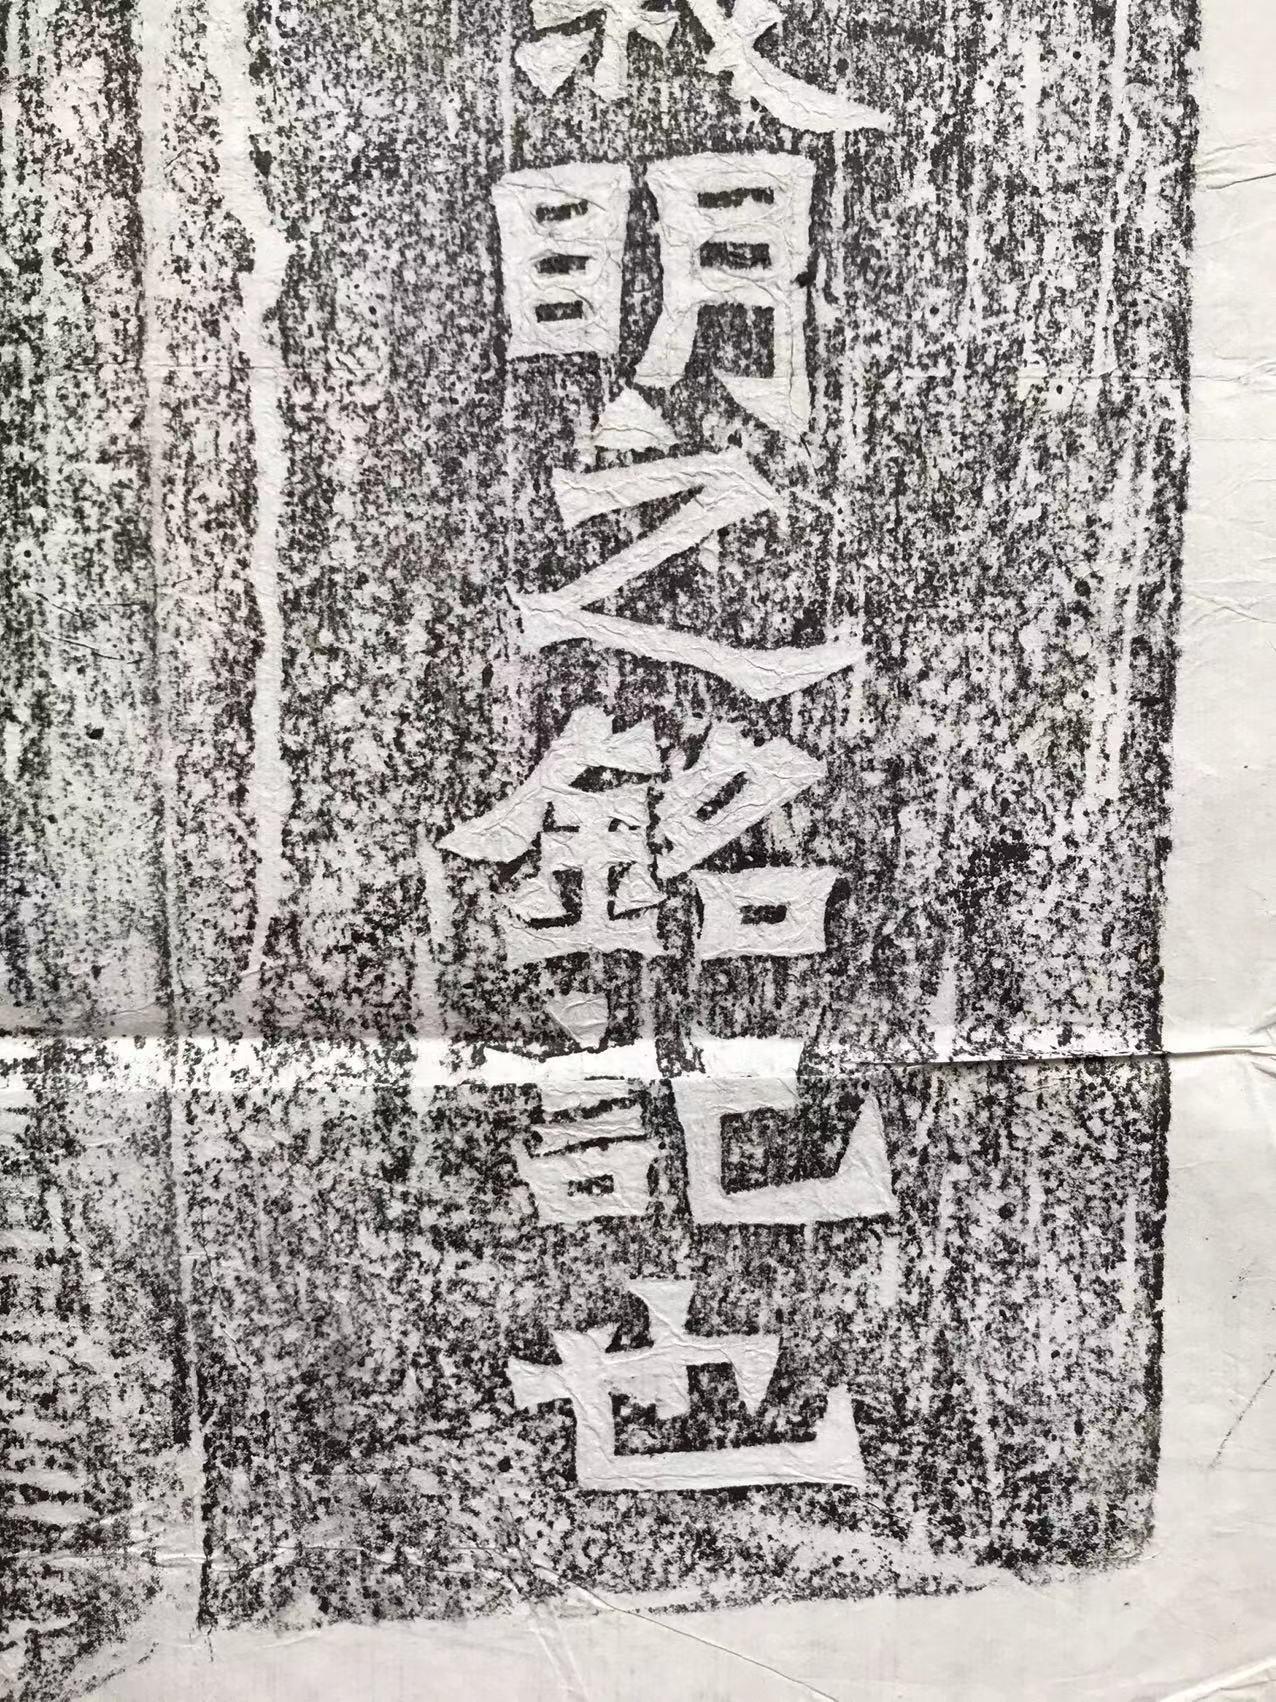 眀之銘記也